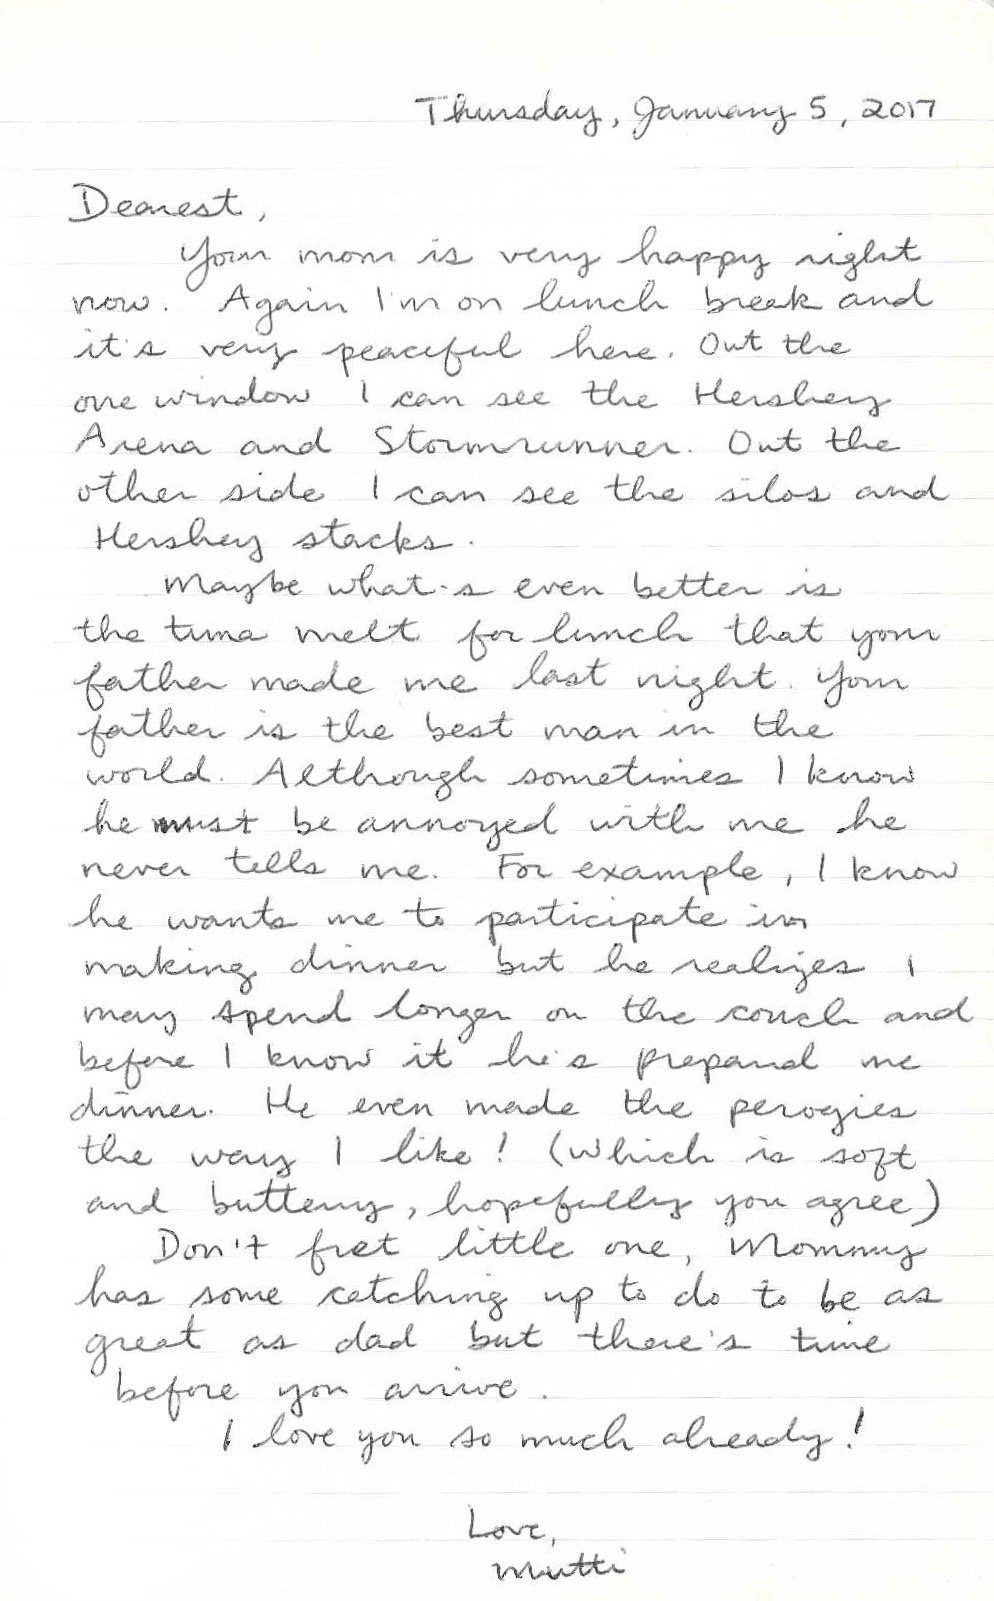 Thursday, January 5, 2017
Dearest,
Your mom is very happy right
now. Again I'm on lunch break and
it's very peaceful here. Out the
one window I can see the Hershey
Arena and Stormrunner. Out the
other side I can see the silos and
Hershey stacks.
Maybe what's even better is
the tuna melt for lunch that your
father made me last night. Your
father is the best man in the
world. Although sometimes I know
he must be annoyed with me he
never tells me. For example, I know
he wants me to participate in
making dinner but he realizes I
may spend longer on the couch and
before I know it he's prepared me
dinner. He even made the perogies
the way I like! (Which is soft
and buttery, hopefully you agree)
Don't fret little one, Mommy
has some catching up to do to be as
great as dad but there's time
before you arrive.
I love you so much already!
Love,
Mutti